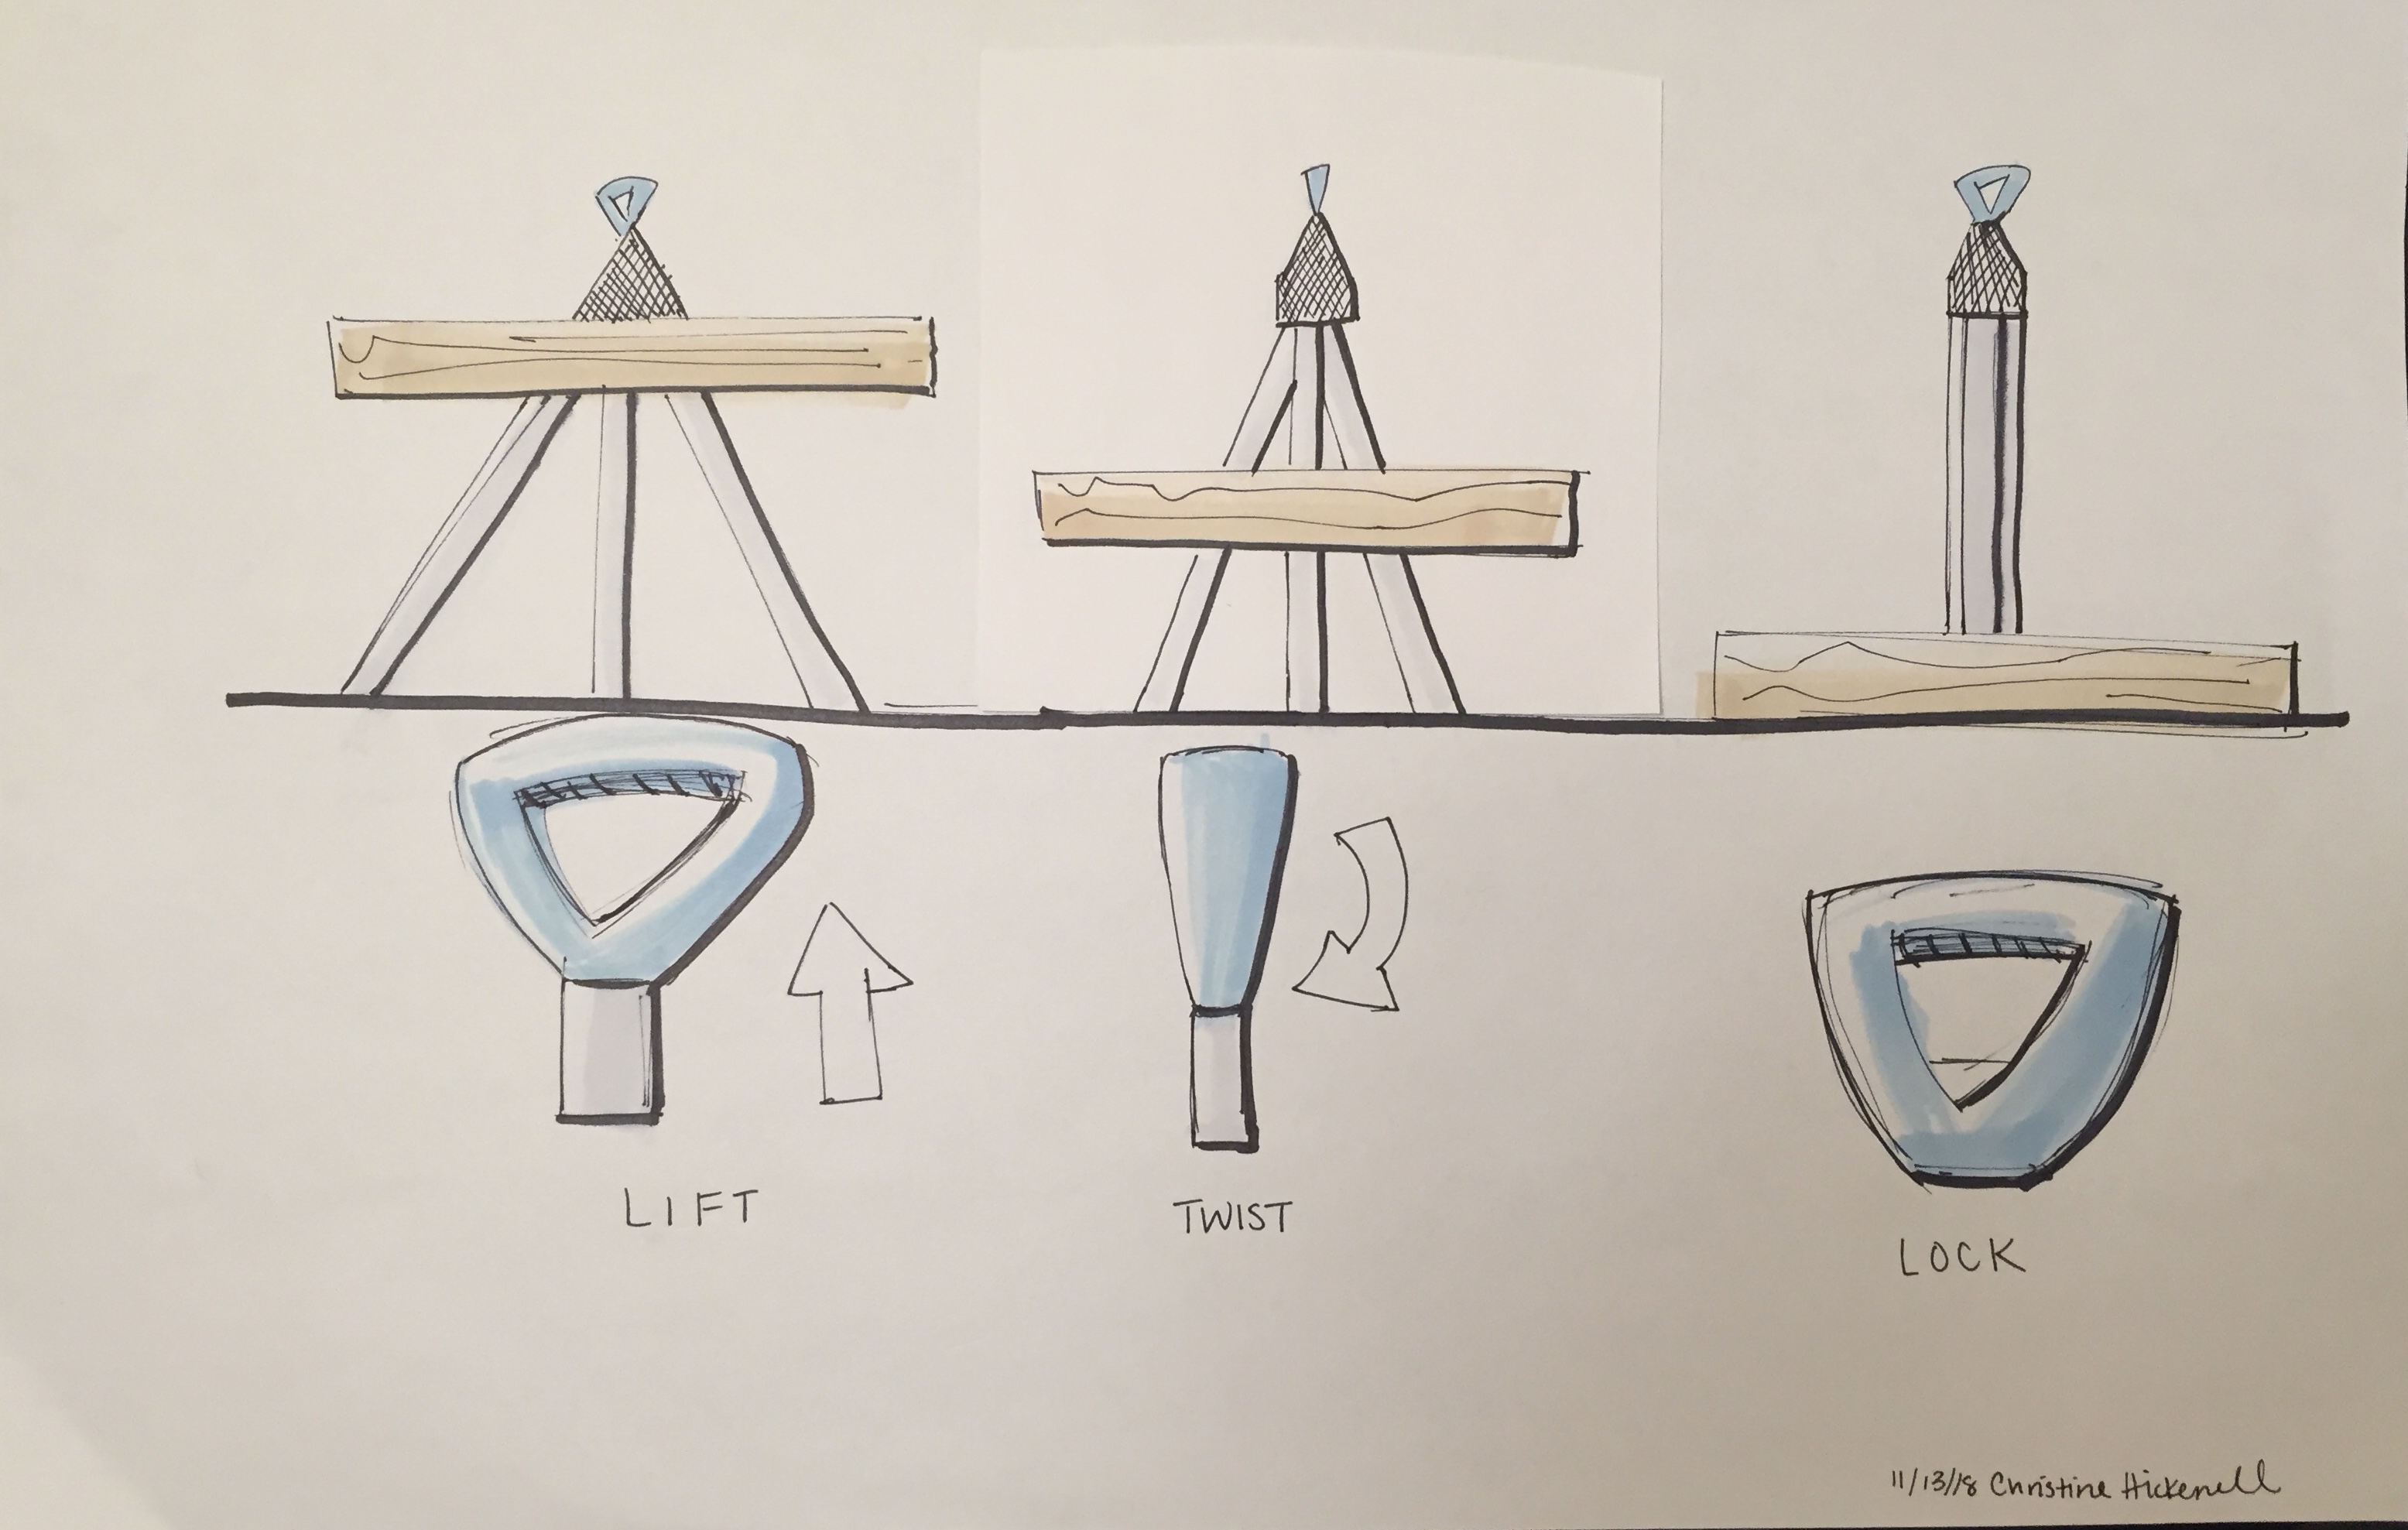 LIFT
TWIST
LOCK
11/13/18 Christine Hickenell